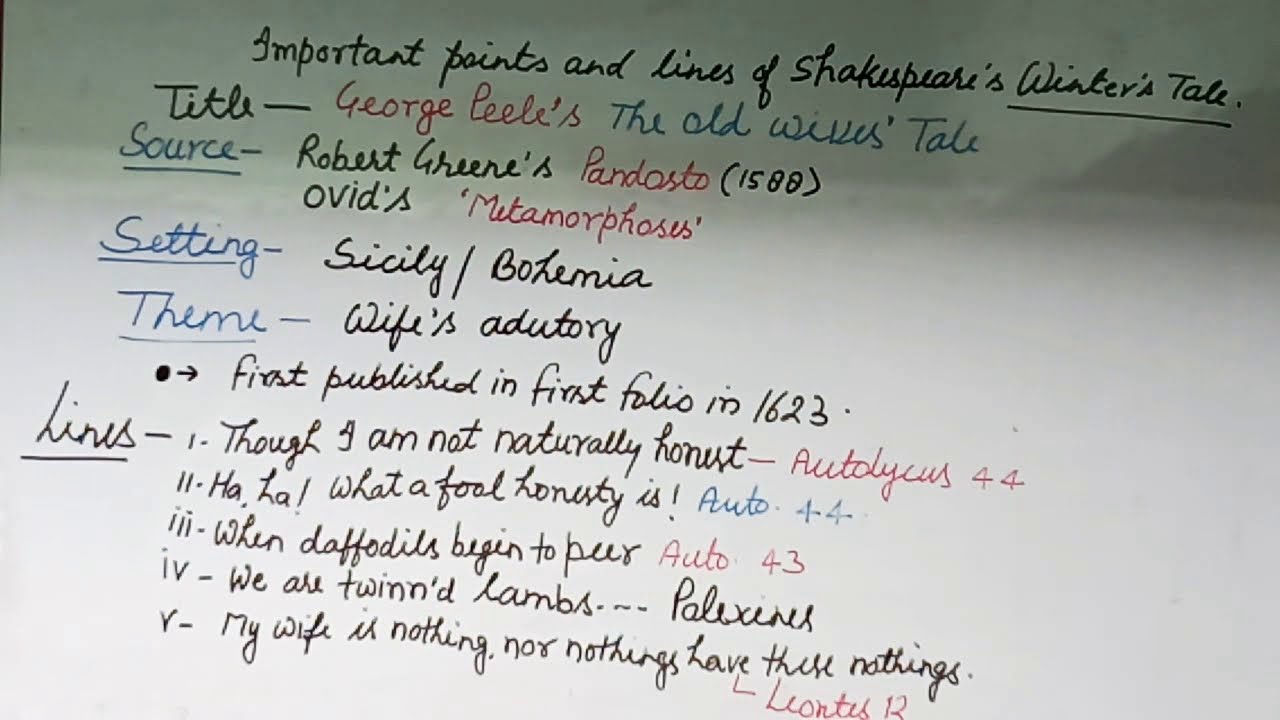 Important points and lines of Shakespeare's Winter's Tale.
Title — George Peele's The old wives' Tale
Source - Robert Greene's Pandosto (1588)
Ovid's 'Metamorphoses'
Setting - Sicily / Bohemia
Theme - Wife's adutory
•→ First published in first folio in 1623.
Lines - i. Though I am not naturally honest - Autolycus 44
II. Ha, ha! What a fool honesty is! Auto. 44.
iii - When daffodils begin to peer Auto. 43
iv - We are twinn'd lambs.... Polixines
v - My wife is nothing, nor nothings have these nothings.
Leontes 12